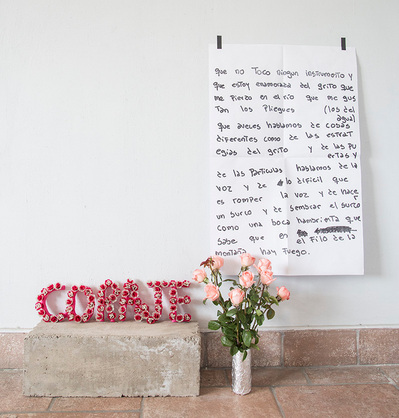 que no Toco ningun instrumento y
que estoy enamorada del grito que
me pierdo en el rio que me gus
Tan los Pliegues (los del
agua)
que aveces hablamos de cosas
diferentes como de las estrat
egias del grito y de las pu
ertas y
de las Particulas hablamos de la
voz y de lo dificil que
es romper la voz y de hacer
un surco y de sembrar el surco
como una boca hambrienta que
sabe que en el Filo de la
montaña hay Fuego.